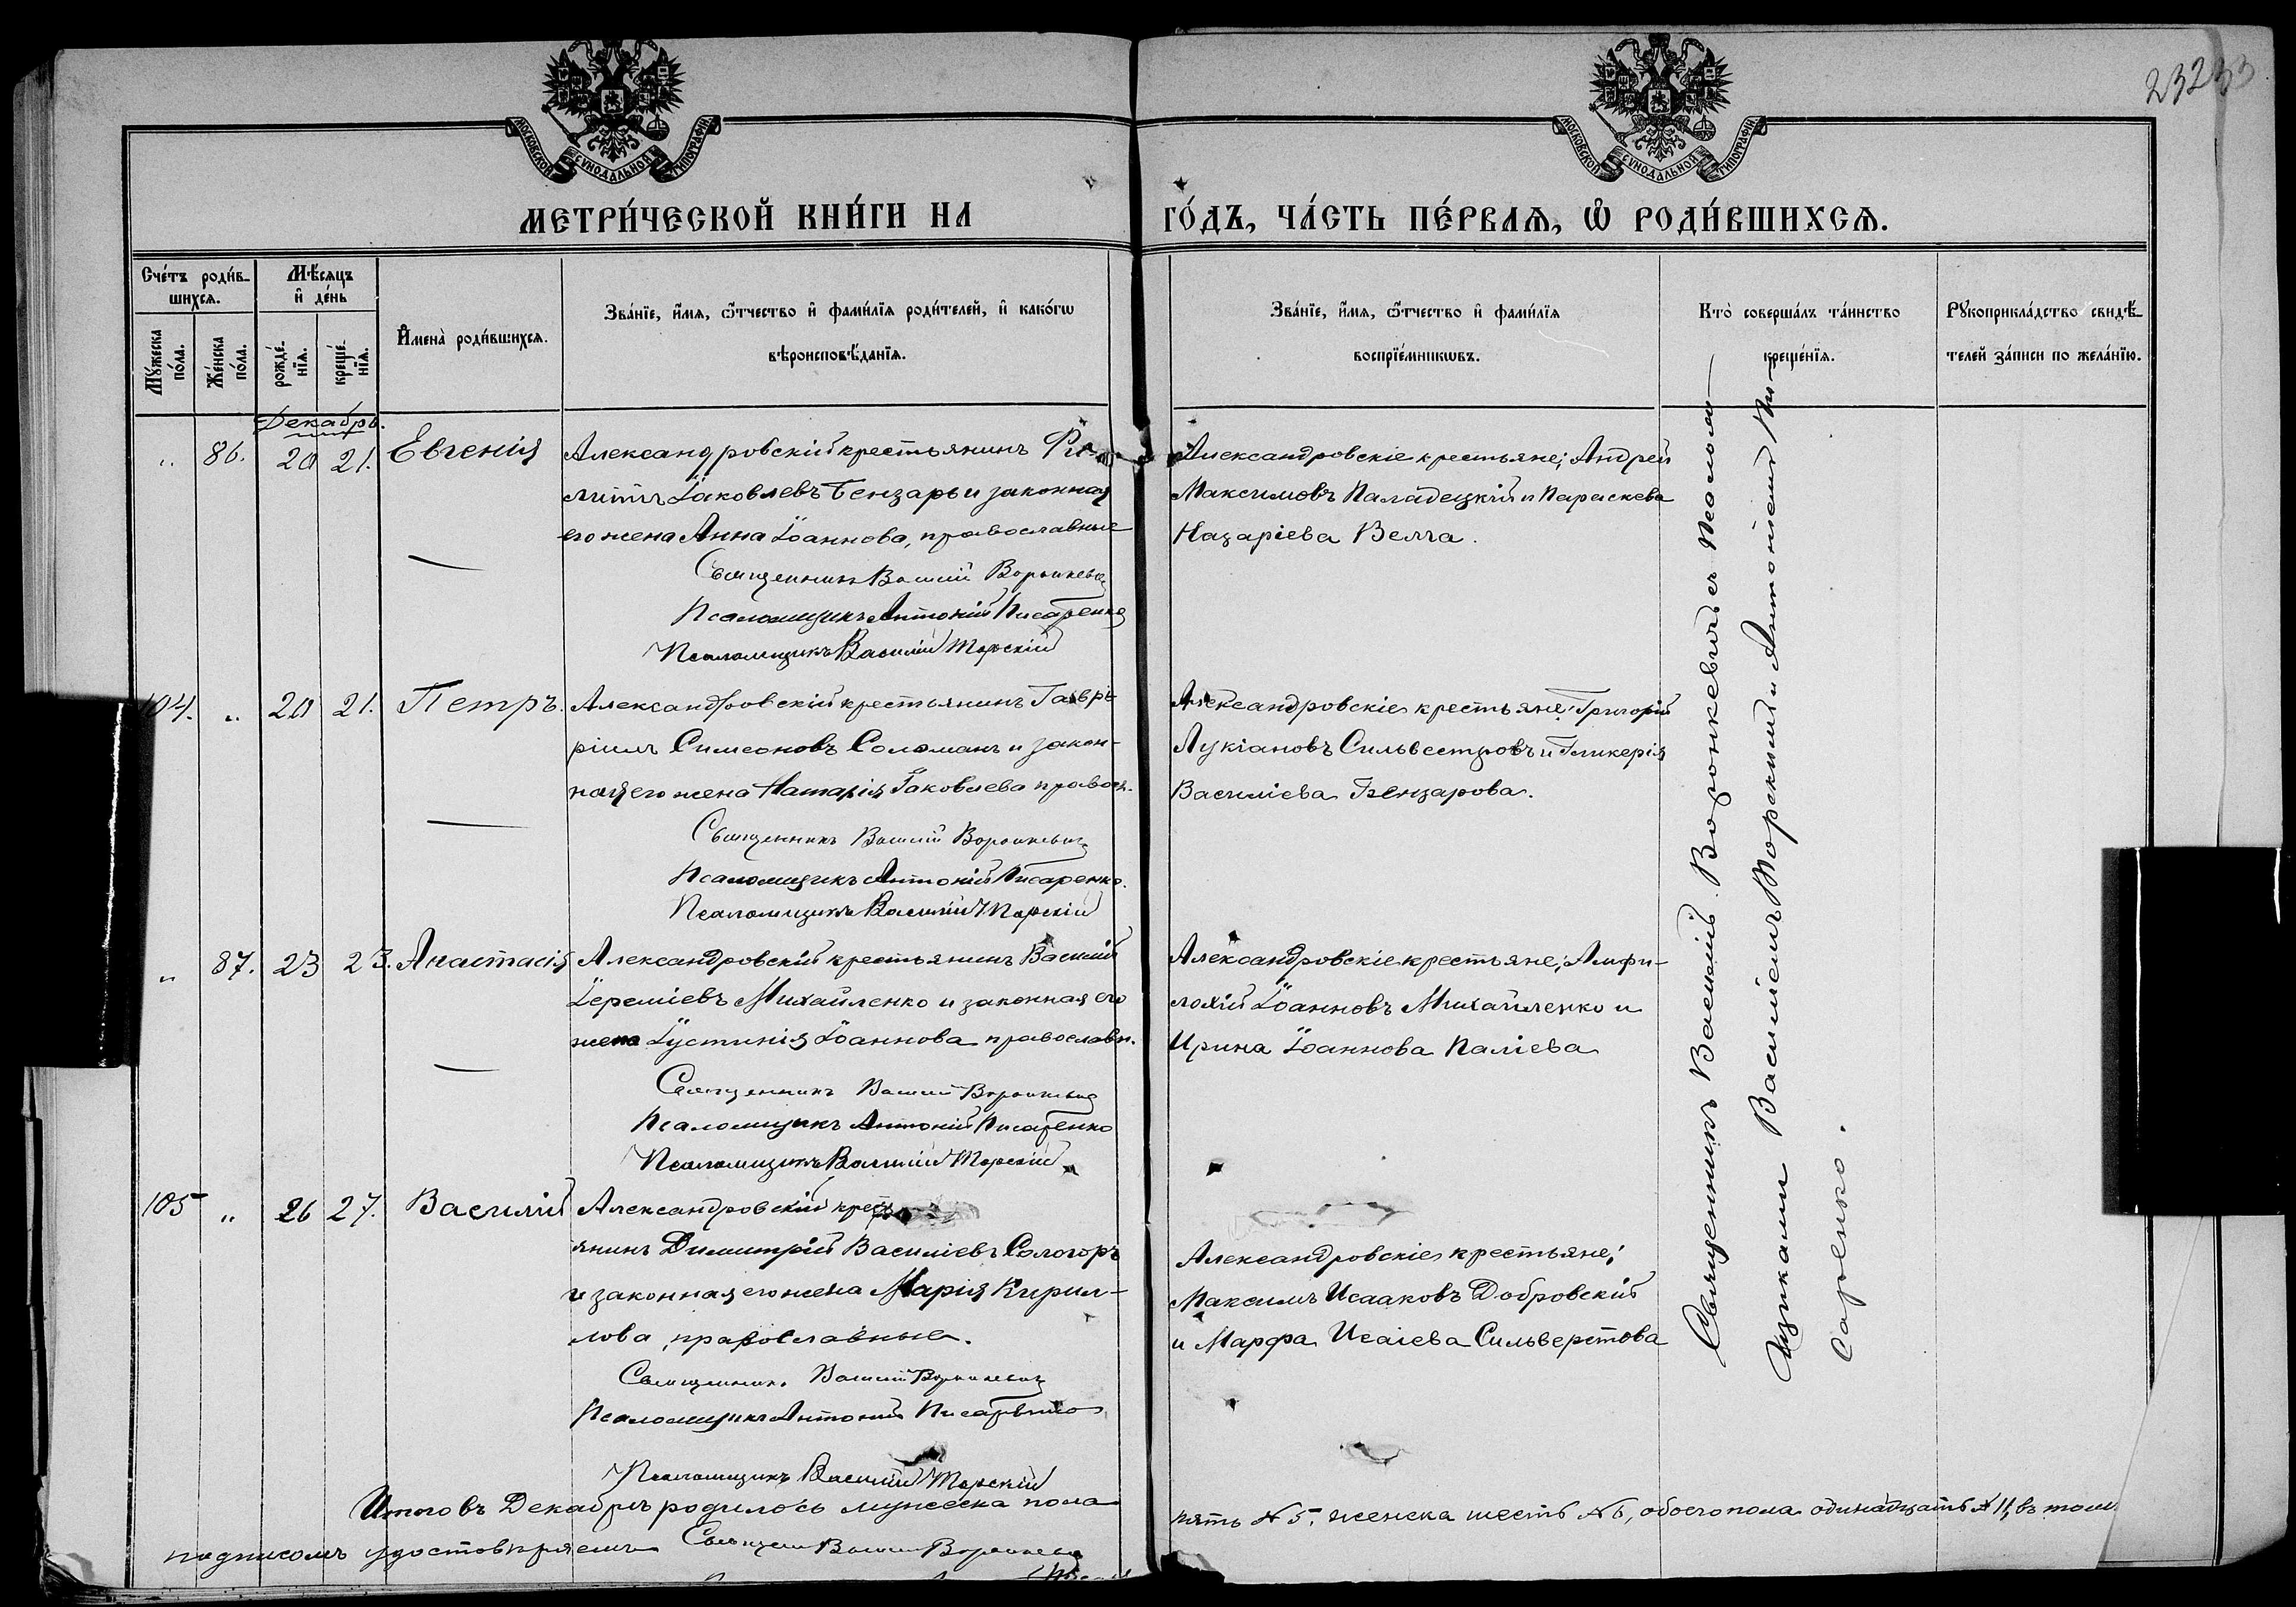 23233
МОСКОВСКОЙ СѴНОДАЛЬНОЙ ТИПОГРАФІИ
МОСКОВСКОЙ СѴНОДАЛЬНОЙ ТИПОГРАФІИ
МЕТРИ́ЧЕСКОЙ КНИ́ГИ НА ГО́ДЪ, ЧА́СТЬ ПЕ́РВАѦ, Ѡ҆ РОДИ́ВШИХСѦ.
Сче́тъ роди́в-
шихсѧ.
Мꙋ́жеска по́ла.
Же́нска по́ла.
Мѣ́сѧцъ
и҆ де́нь
рожде́-
нїѧ.
креще́-
нїѧ.
И҆мена̀ роди́вшихсѧ.
Зва́нїе, и҆́мѧ, ѻ҆́тчество и҆ фами́лїѧ роди́телей, и҆ како́гѡ
вѣроисповѣ́данїѧ.
Зва́нїе, и҆́мѧ, ѻ҆́тчество и҆ фами́лїѧ
воспрїе́мникѡвъ.
Кто̀ соверша́лъ та́инство
креще́нїѧ.
Рꙋкоприкла́дство свидѣ́-
телей за́писи по жела́нїю.
Декабрь.
„ 86. 20 21. Евгенія
Александровскій крестьянинъ Фи-
липпъ Іаковлевъ Бензарь и законная
его жена Анна Іоаннова, православные
Священникъ Василій Воронкевич
Псаломщикъ Антоній Писаренко
Псаломщикъ Василій Торскій
Александровскіе крестьяне; Андрей
Максимовъ Паладецкій и Параскева
Назаріева Велга.
104. „ 20 21. Петръ.
Александровскій крестьянинъ Гаврі-
ріилъ Симеоновъ Соломанъ и закон-
ная его жена Наталія Іаковлева правосл.
Священникъ Василій Воронкевич
Псаломщикъ Антоній Писаренко.
Псаломщикъ Василій Торскій
Александровскіе крестьяне; Григорій
Лукіановъ Сильвестровъ и Гликерія
Василіева Бензарова.
„ 87. 23 23. Анастасія
Александровскій крестьянинъ Василій
Іереміевъ Михайленко и законная его
жена Іустинія Іоаннова православн.
Священникъ Василій Воронкевич
Псаломщикъ Антоній Писаренко
Псаломщикъ Василій Торскій
Александровскіе крестьяне; Амфи-
лохій Іоанновъ Михайленко и
Ирина Іоаннова Паліева
105 „ 26 27. Василій
Александровскій крест
янинъ Димитрій Василіевъ Сологоръ
и законная его жена Марія Кирил-
лова, православные.
Священник. Василій Воронкевич
Псаломщикъ Антоній Писаренко
Псаломщикъ Василій Торскій
Александровскіе крестьяне;
Максимъ Исааковъ Добровскій
и Марфа Исаіева Сильверстова
Священникъ Василій Воронкевичъ съ Псалом-
щиками Василіемъ Торскимъ и Антоніемъ Пи-
саренко.
Итого въ Декабрѣ родилось мужеска пола пять № 5, женска шесть № 6, обоего пола одинадцать № 11, въ томъ
подписомъ удостовѣряемъ Священ Василій Воронкевич